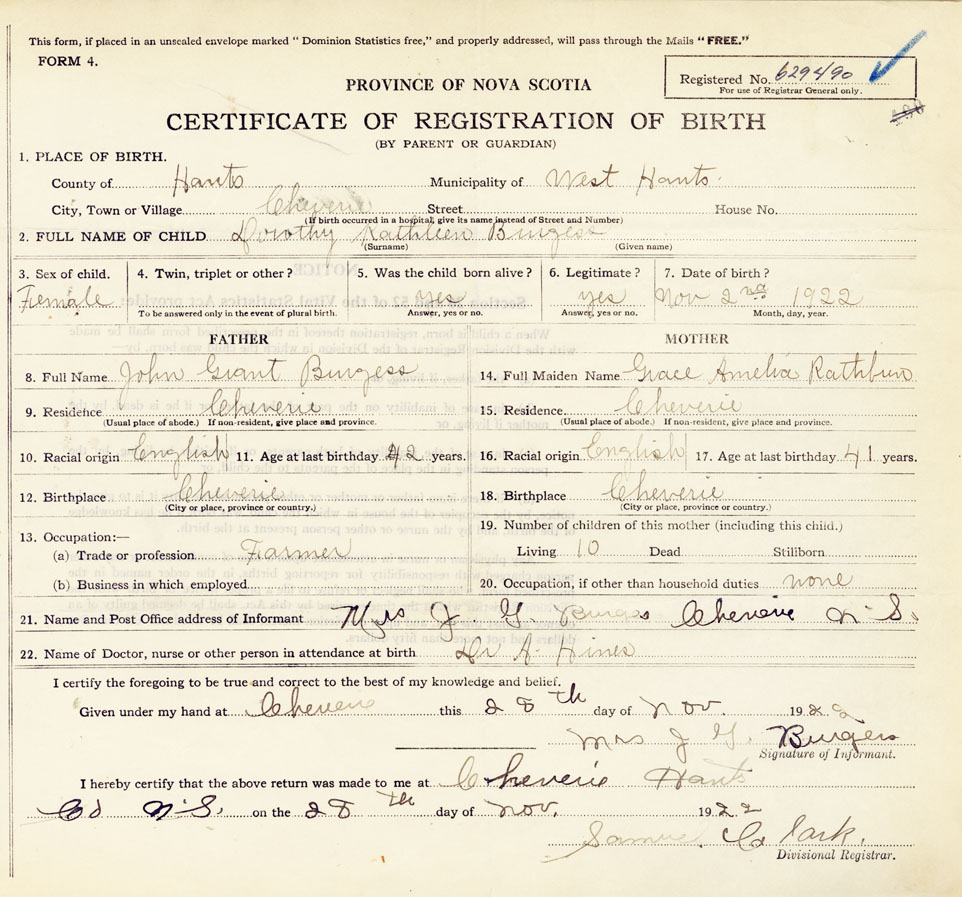 This form, if placed in an unsealed envelope marked " Dominion Statistics free," and properly addressed, will pass through the Mails "FREE."
FORM 4.
Registered No. 629490
For use of Registrar General only.
PROVINCE OF NOVA SCOTIA
CERTIFICATE OF REGISTRATION OF BIRTH
(BY PARENT OR GUARDIAN)
1. PLACE OF BIRTH.
County of Hants Municipality of West Hants.
City, Town or Village Cheverie Street House No.
(If birth occurred in a hospital, give its name instead of Street and Number)
2. FULL NAME OF CHILD Dorothy Kathleen Burgess
(Surname) (Given name)
3. Sex of child. 4. Twin, triplet or other? 5. Was the child born alive? 6. Legitimate? 7. Date of birth?
Female yes yes Nov 2nd 1922
To be answered only in the event of plural birth. Answer, yes or no. Answer, yes or no. Month, day, year.
FATHER MOTHER
8. Full Name John Grant Burgess 14. Full Maiden Name Grace Amelia Rathbun
9. Residence Cheverie 15. Residence Cheverie
(Usual place of abode.) If non-resident, give place and province. (Usual place of abode.) If non-resident, give place and province.
10. Racial origin English 11. Age at last birthday 42 years. 16. Racial origin English 17. Age at last birthday 41 years.
12. Birthplace Cheverie 18. Birthplace Cheverie
(City or place, province or country.) (City or place, province or country.)
13. Occupation:— 19. Number of children of this mother (including this child.)
(a) Trade or profession Farmer Living 10 Dead Stillborn
(b) Business in which employed 20. Occupation, if other than household duties none
21. Name and Post Office address of Informant Mrs J. G. Burgess Cheverie N.S.
22. Name of Doctor, nurse or other person in attendance at birth Dr A. Hines
I certify the foregoing to be true and correct to the best of my knowledge and belief.
Given under my hand at Cheverie this 28th day of Nov. 1922
Mrs J G. Burgess
Signature of Informant.
I hereby certify that the above return was made to me at Cheverie Hants
Co N.S. on the 28th day of Nov. 1922
Samuel C. Lark.
Divisional Registrar.